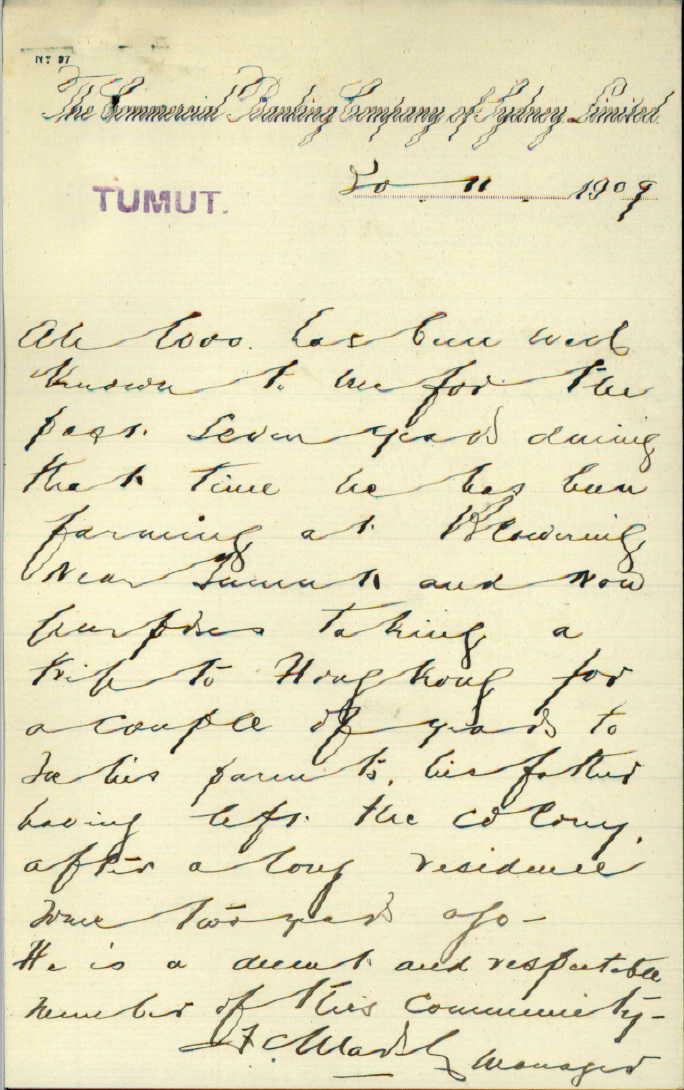 No 97
The Commercial Banking Company of Sydney Limited
TUMUT.
20 11 1909
Ah Looo. has been well
known to me for the
past seven years during
that time he has been
farming at Blowering
Near Tumut and now
purposes taking a
trip to Hong Kong for
a couple of years to
see his parents, his father
having left the colony,
after a long residence
some two years ago -
He is a decent and respectable
member of this community -
Manager